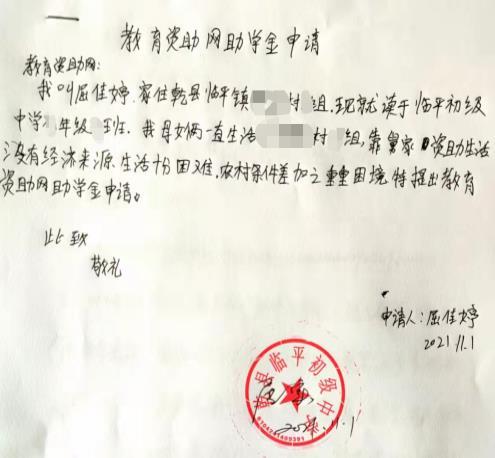 教育资助网助学金申请
教育资助网:
我叫屈佳婷,家住乾县临平镇 村 组,现就读于临平初级
中学 年级 班。我母女俩一直生活 村 组,靠舅家资助生活
没有经济来源生活十份困难,农村条件差加之重重困境特提出教育
资助网助学金申请。
此致
敬礼
申请人:屈佳婷
2021.11.1
乾县临平初级中学